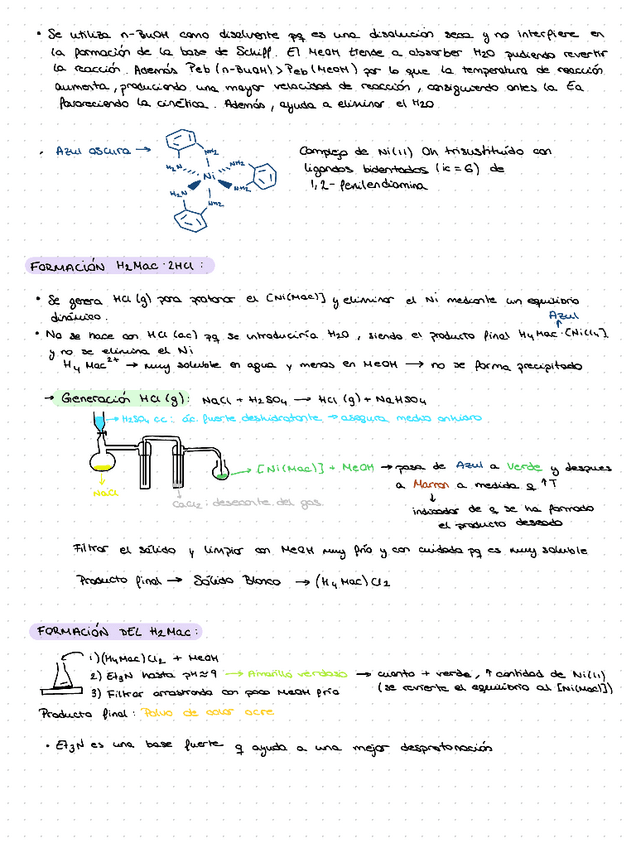 • Se utiliza n-BuOH como disolvente pq es una disolución seca y no interfiere en
la formación de la base de Schiff. El MeOH tiende a absorber H2O pudiendo revertir
la reacción. Además Peb (n-BuOH) > Peb (MeOH) por lo que la temperatura de reacción
aumenta, produciendo una mayor velocidad de reacción, consiguiendo antes la Ea
favoreciendo la cinética. Además, ayuda a eliminar el H2O
• Azul oscuro →
NH2
H2N
NH2
Ni
H2N
NH2
NH2
Complejo de Ni(II) Oh trisustituido con
ligandos bidentados (ic = 6) de
1,2-fenilendiamina
FORMACIÓN H2Mac·2HCl:
• Se genera HCl (g) para protonar el [Ni(Mac)] y eliminar el Ni mediante un equilibrio
dinámico.
Azul
↑
• No se hace con HCl (ac) pq se introduciría H2O, siendo el producto final H4Mac·[NiCl4]
y no se elimina el Ni
H4Mac2+ → muy soluble en agua y menos en MeOH → no se forma precipitado
→ Generación HCl (g): NaCl + H2SO4 → HCl (g) + NaHSO4
→ H2SO4 cc: ác. fuerte deshidratante → asegura medio anhidro.
→ [Ni(Mac)] + MeOH → pasa de Azul a Verde y despues
a Marron a medida q ↑T
↓
indicador de q se ha formado
el producto deseado
NaCl
CaCl2: desecante del gas.
Filtrar el sólido y limpiar con MeOH muy frío y con cuidado pq es muy soluble
Producto final → Sólido Blanco → (H4Mac)Cl2
FORMACIÓN DEL H2Mac:
1) (H4Mac)Cl2 + MeOH
2) Et3N hasta pH≈9 → Amarillo verdoso → cuanto + verde, ↑ cantidad de Ni(II)
(se revierte el equilibrio al [Ni(Mac)])
3) Filtrar arrastrando con poco MeOH frío
Producto final: Polvo de color ocre
• Et3N es una base fuerte q ayuda a una mejor desprotonación